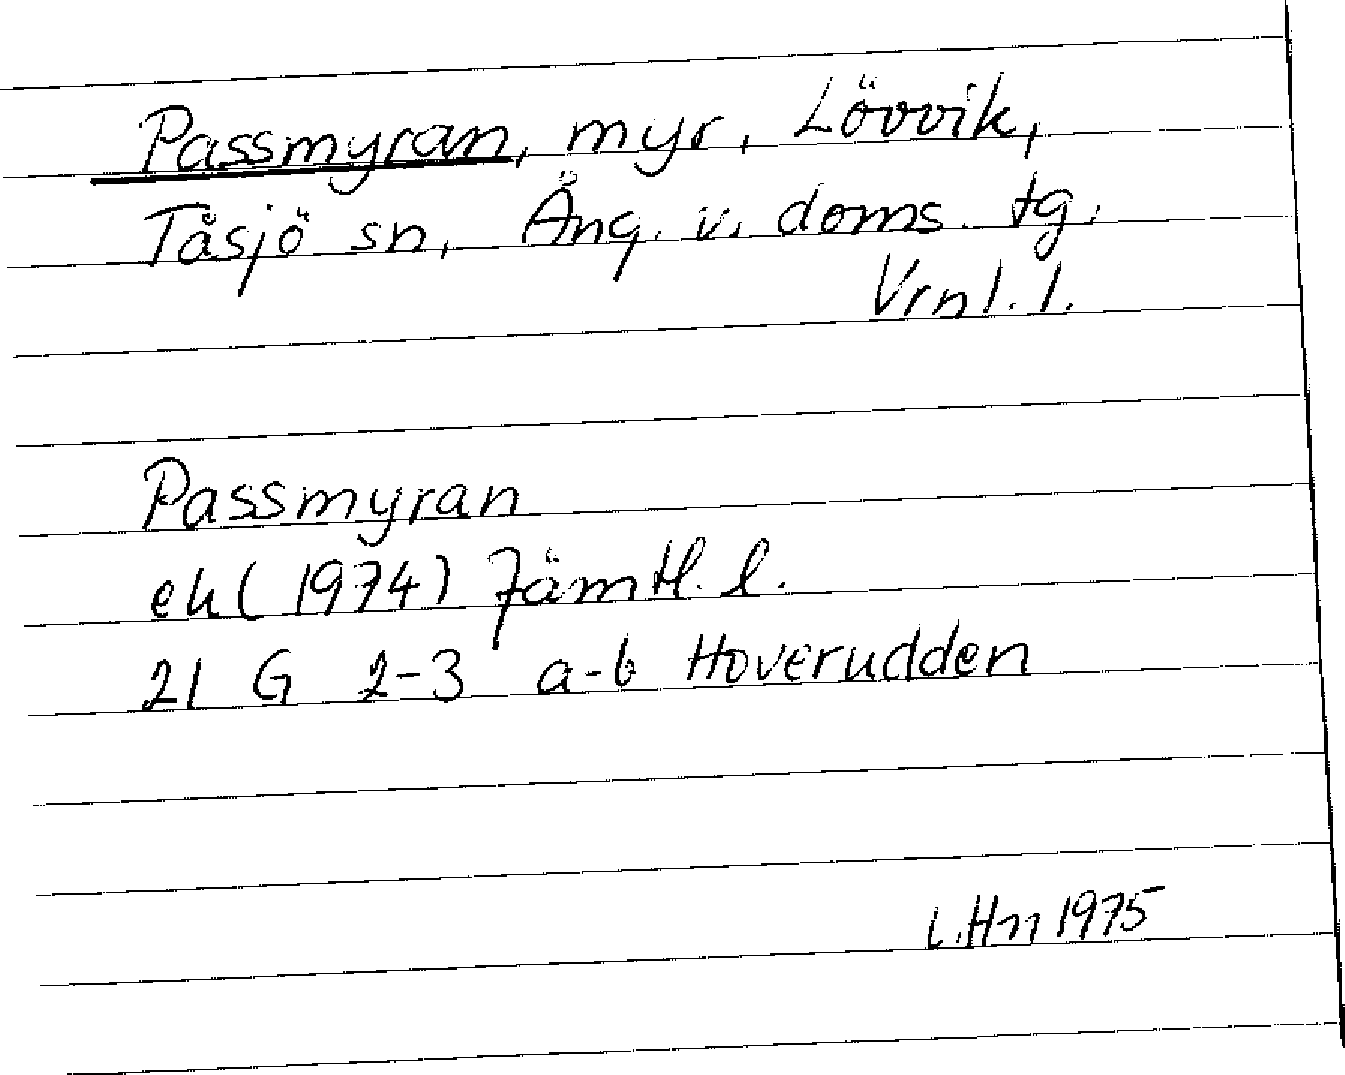 Passmyran, myr, Lövvik,
Tåsjö sn, Ång. v. doms. tg.
Vrnl. l.
Passmyran
ek (1974) Jämtl. l.
21 G 2-3 a-b Hoverudden
L.Hn 1975